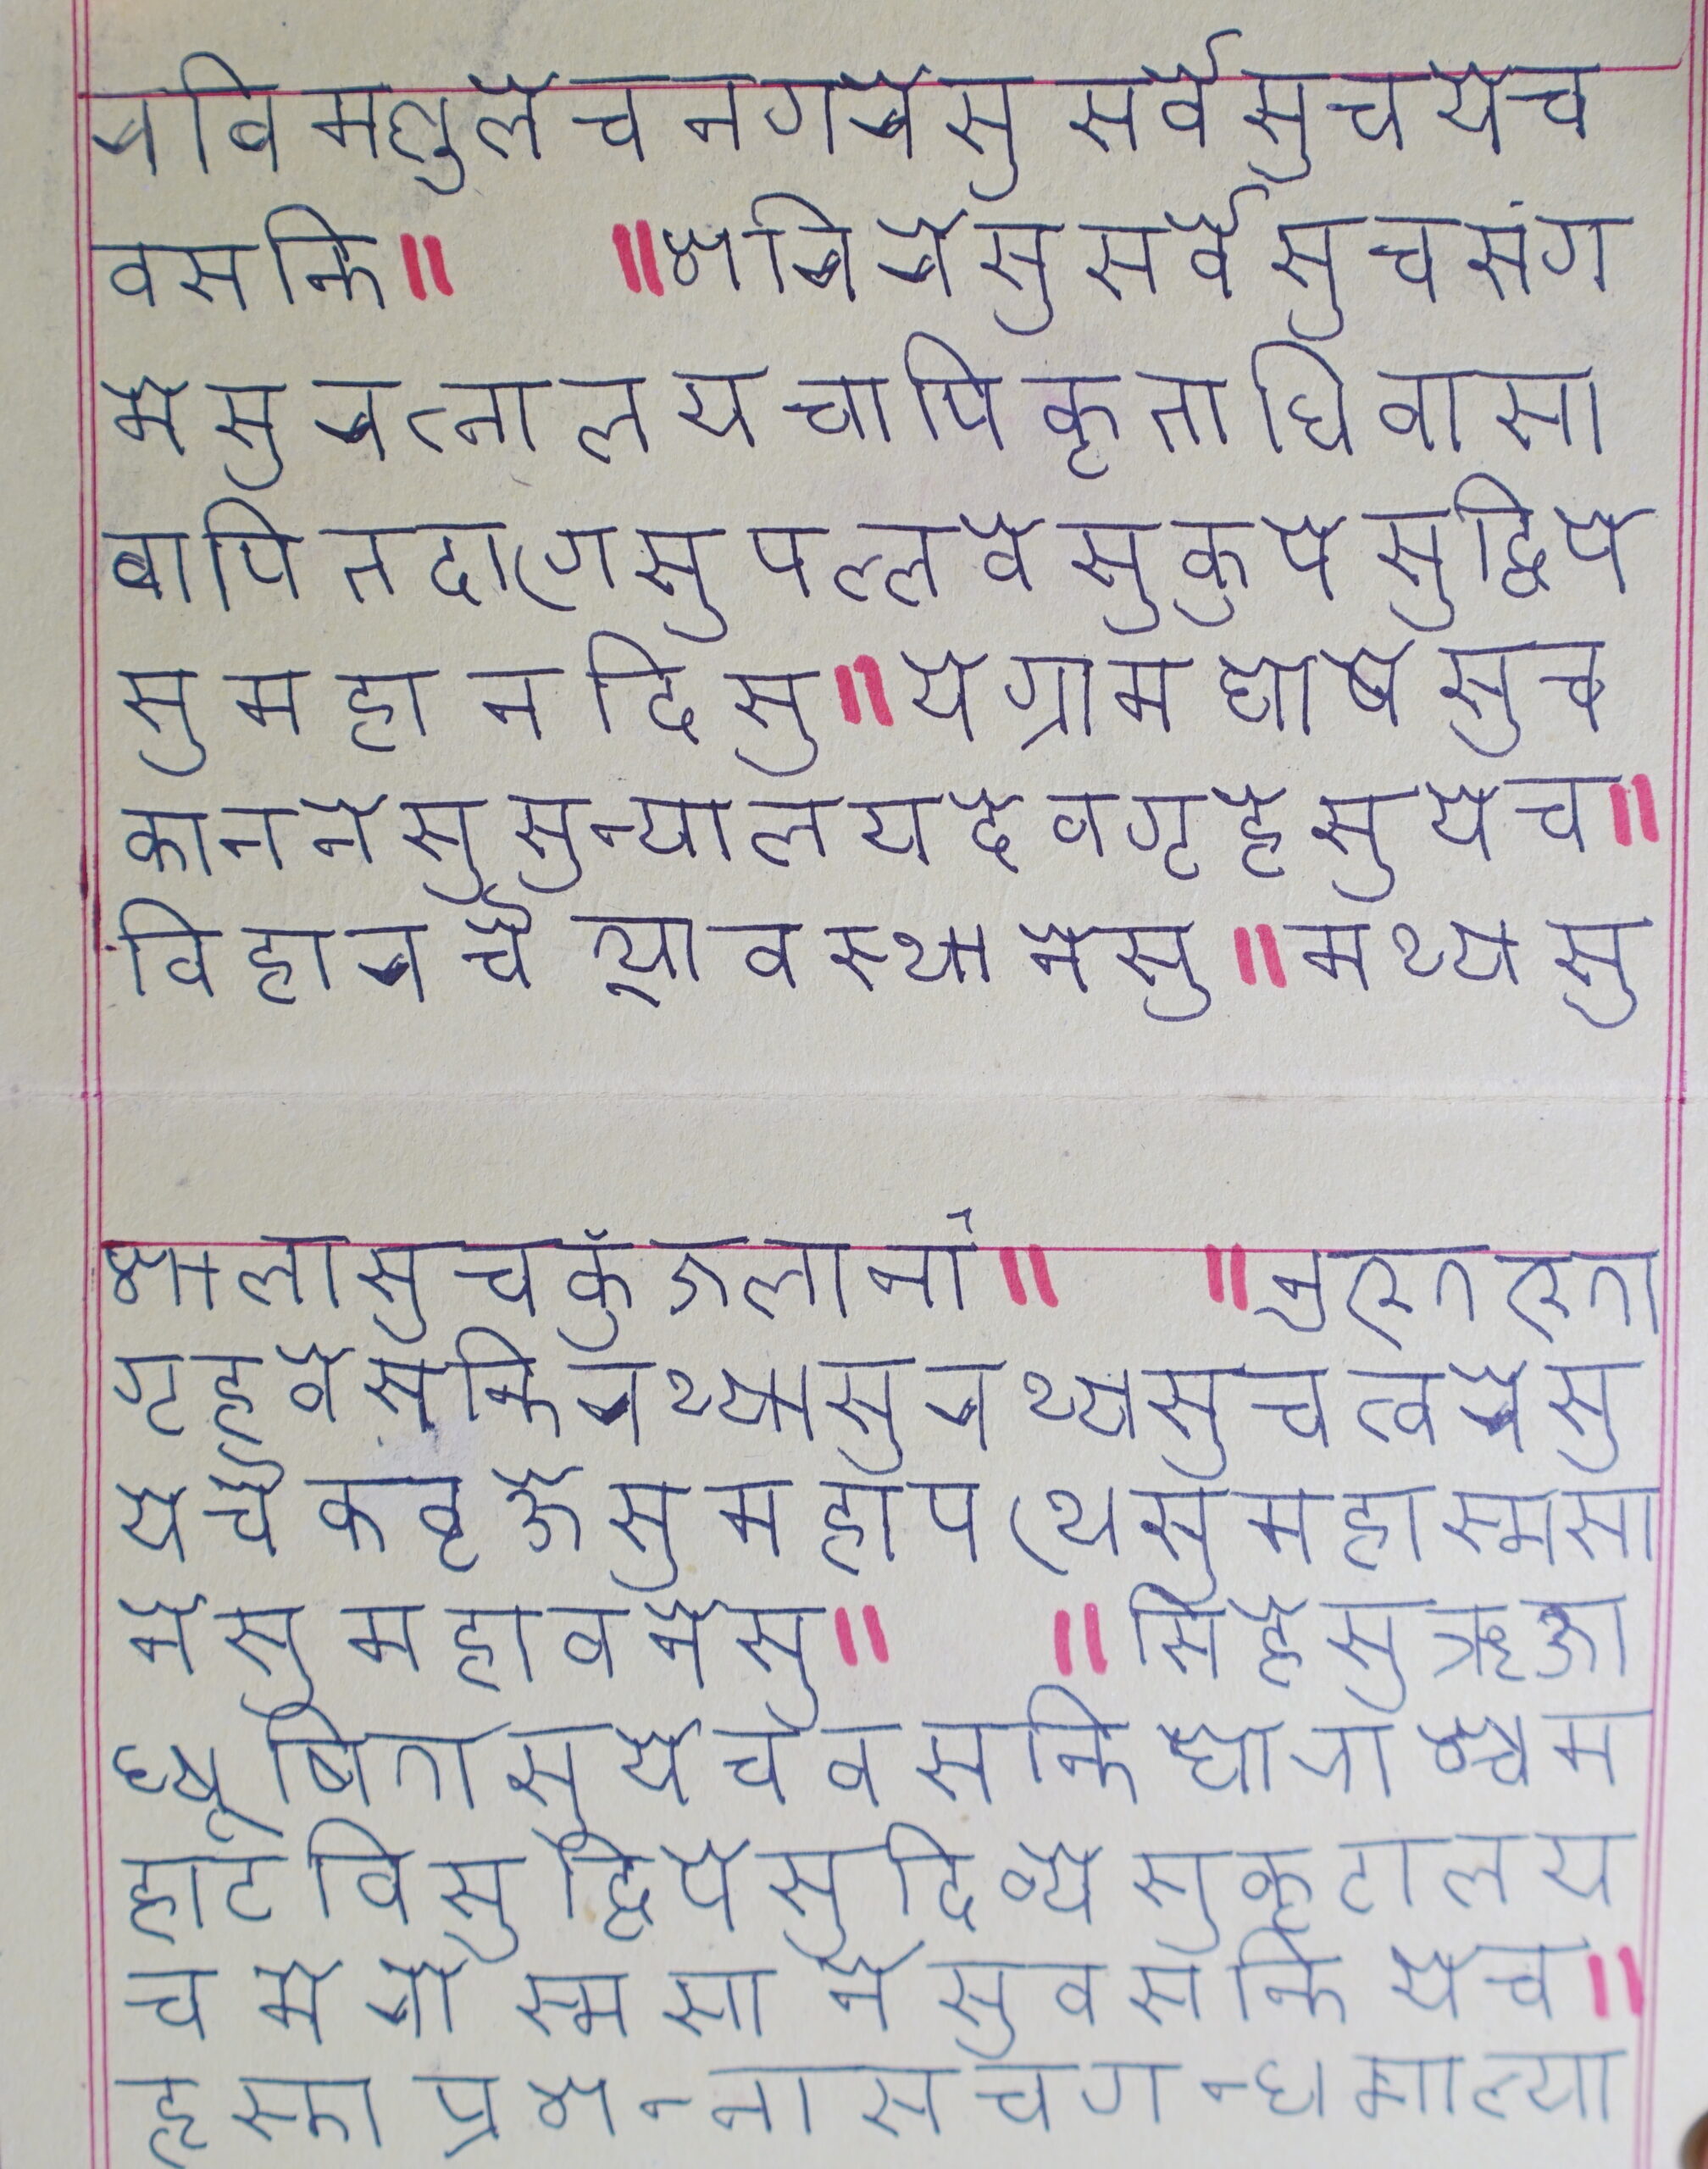 रविमण्डुलेच नगरेसु सर्वेसुचयेच
वसन्ति॥ ॥सरिरेसु सर्वेसुचसंग
मेसु रत्नालय चापि कृताधिवासा
वापि तदागसु पल्लवेसु कुपेसु द्विपे
सु महानदिसु॥ येग्राम घोषेसुच
काननेसु सुन्यालय देवगृहेसु येच॥
विहार चैत्यावस्थानेसु॥ मथ्यसु
सालासुचकुँञलानां॥
गृहवेसन्तिरथ्यासुरथ्यसुचत्वरेसु
येचैकवृक्षेसु महापथसु महास्मसा
नेसु महावनेसु॥ ॥सिंहेसुऋक्षा
ध्यूषितासु येचवसन्ति घोराश्चैम
हाटविसु द्विपेसु दिव्येसु कृटालय
च मेरौ स्मसानेसुवसन्ति येच॥
हृस्ता प्रसन्नासचगन्धमाल्या